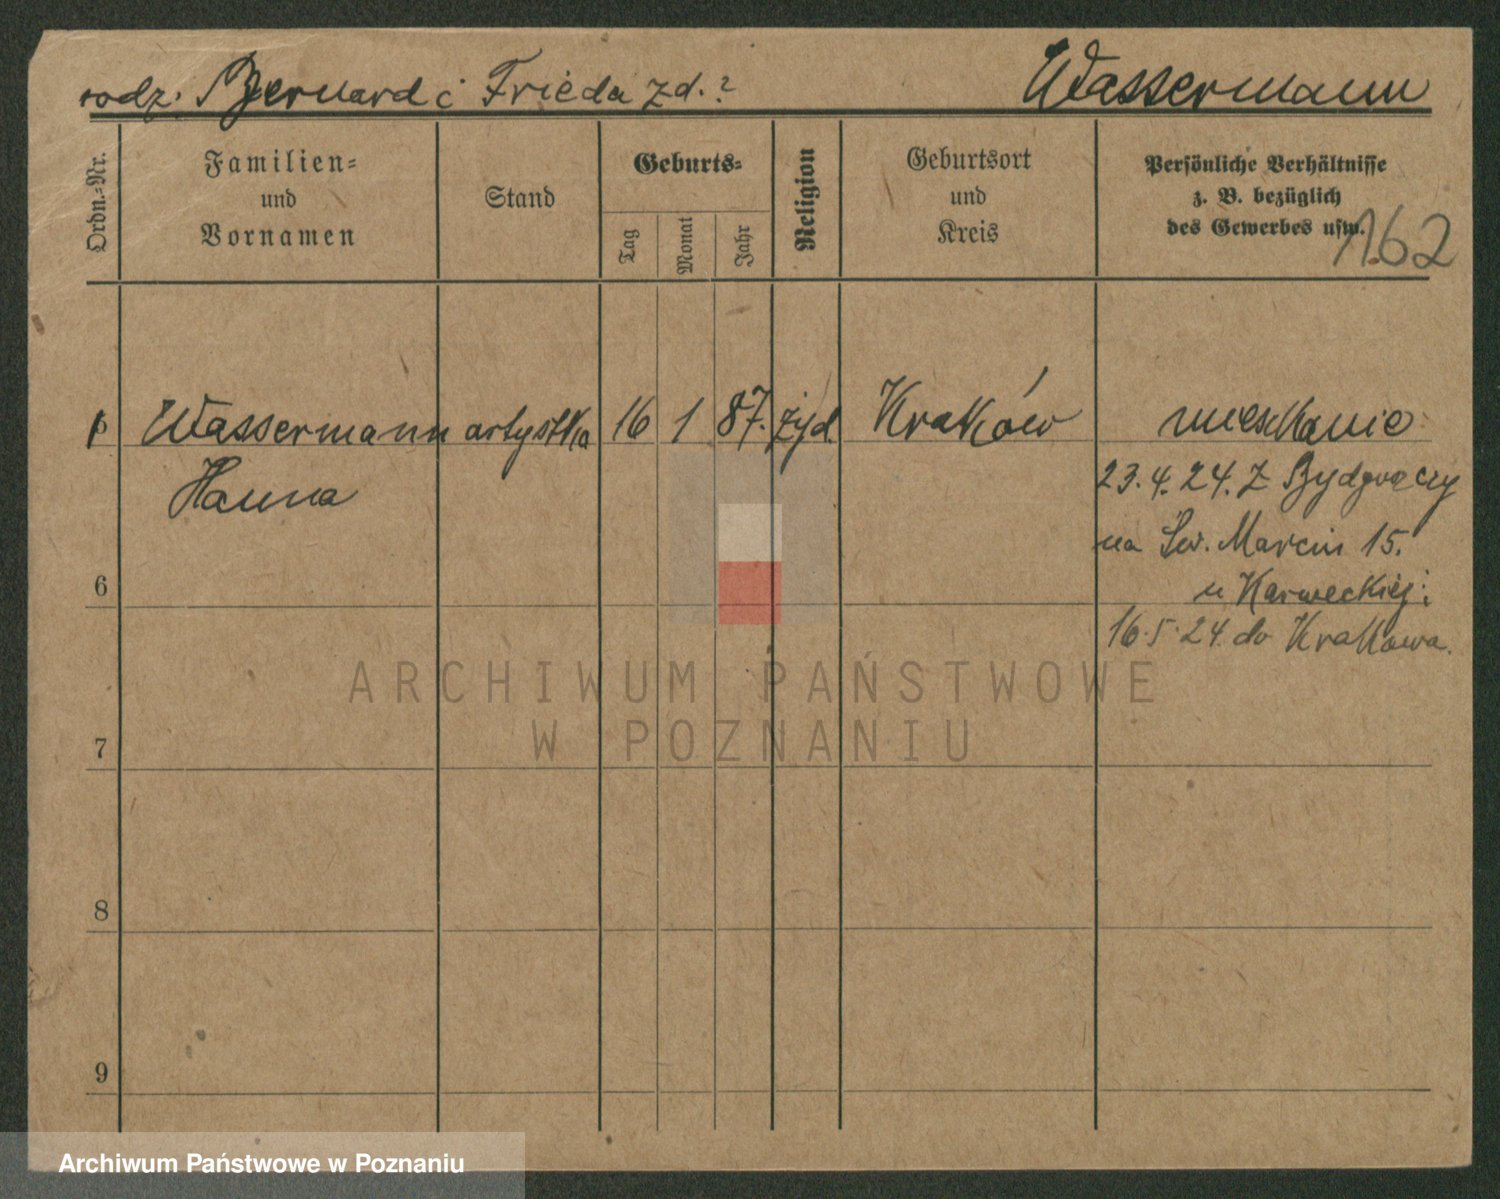 rodz. Bernard i Frieda zd.?
Wassermann
Ordn.-Nr.
Familien-
und
Vornamen
Stand
Geburts-
Tag
Monat
Jahr
Religion
Geburtsort
und
Kreis
Persönliche Verhältnisse
z. B. bezüglich
des Gewerbes usw.
162
Wassermann artystka 16 1 87. żyd. Kraków
Hanna
mieszkanie
23.4.24. z Bydgoszczy
na Św. Marcin 15.
u Karweckiej;
16.5.24. do Krakowa.
6
7
8
9
ARCHIWUM PAŃSTWOWE
W POZNANIU
Archiwum Państwowe w Poznaniu